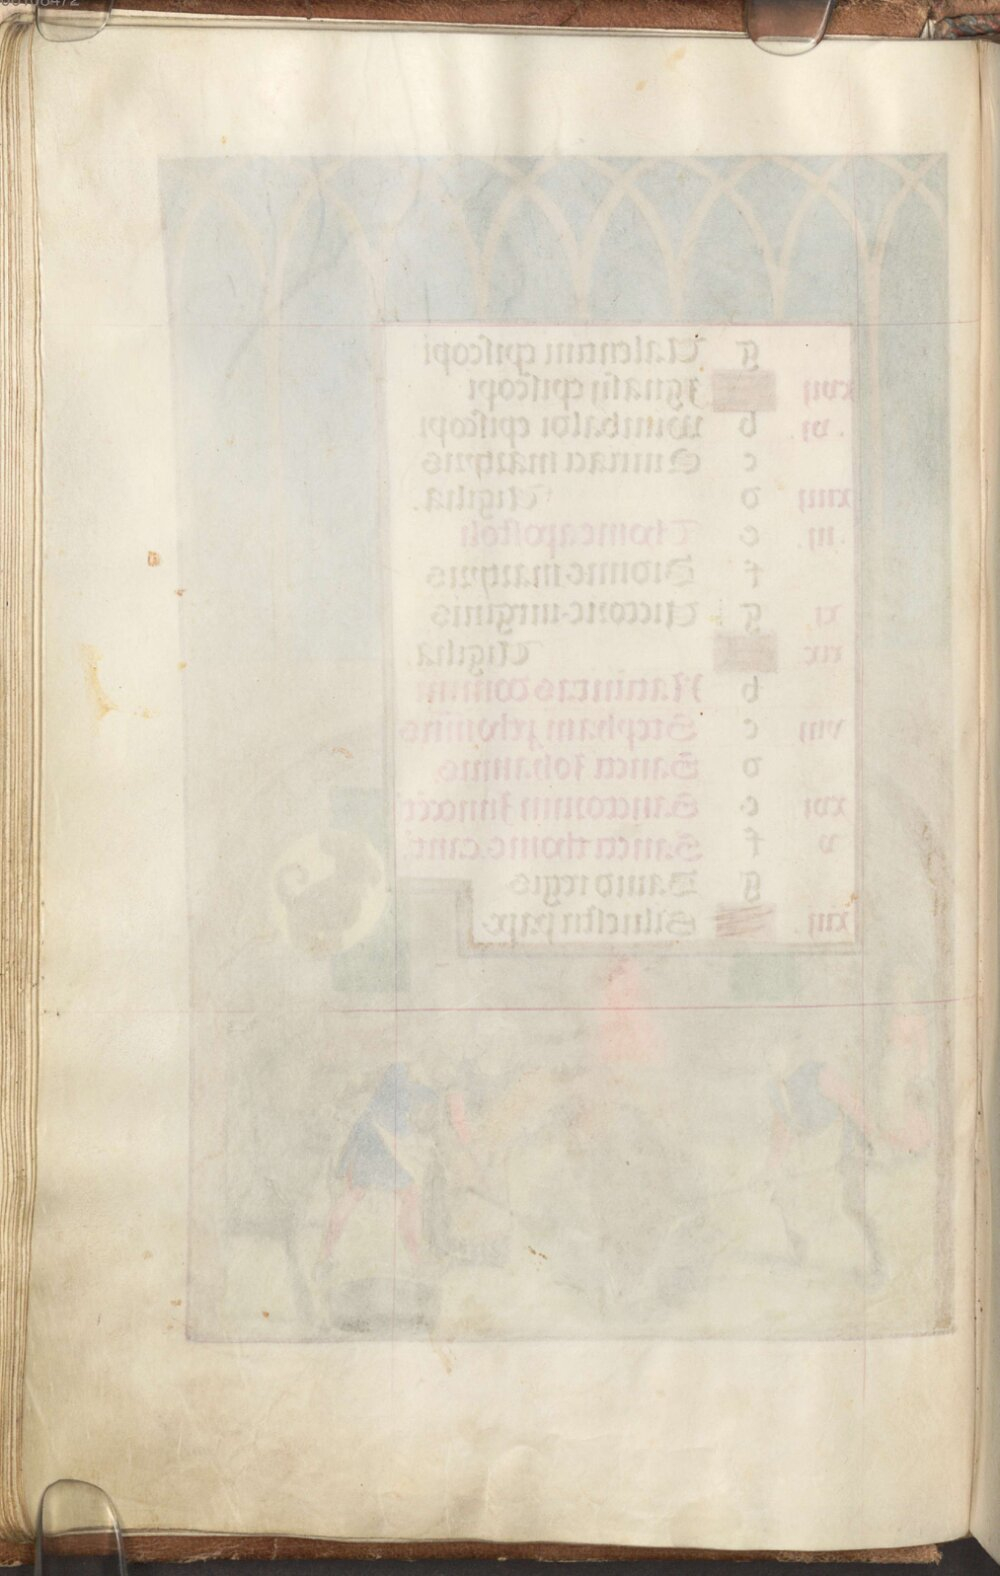 g Valentini episcopi
xvii Ignatii episcopi
.vi. b Wunibaldi episcopi
c
xiiii d Vigilia.
.iii. e Thome apostoli
f martyris
xi. g Victorie virginis
xix Vigilia.
b Nativitas domini
viii c Stephani prothomris
d Sancti Johannis
xvi e Sanctorum Innocen
v f Sancti thome cant.
g David regis
xiii. Silvestri pape